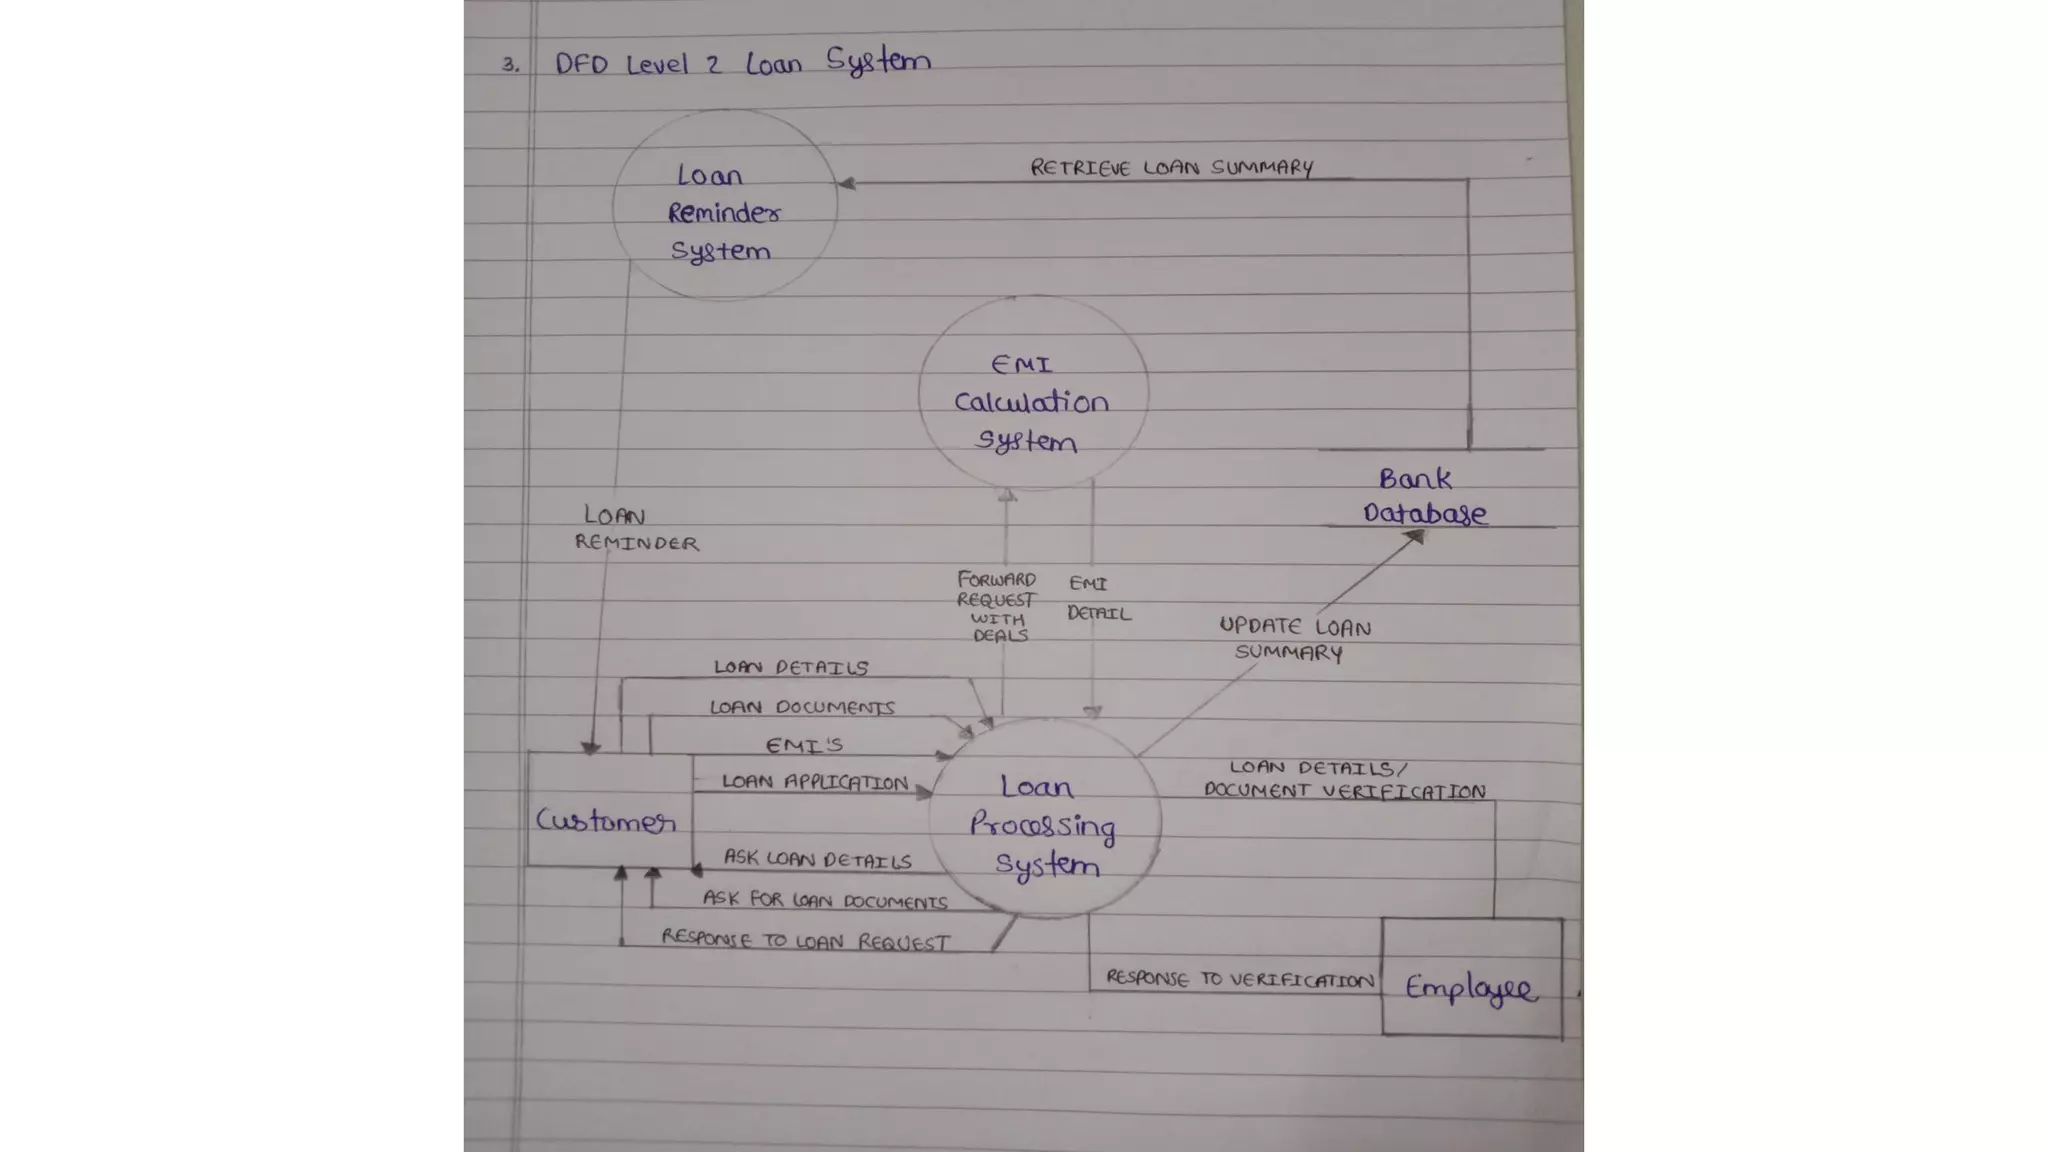 3. DFD Level 2 Loan System
Loan
Reminder
System
RETRIEVE LOAN SUMMARY
EMI
Calculation
System
Bank
Database
LOAN
REMINDER
FORWARD
REQUEST
WITH
DEALS
EMI
DETAIL
UPDATE LOAN
SUMMARY
LOAN DETAILS
LOAN DOCUMENTS
EMI'S
LOAN APPLICATION
Customer
Loan
Processing
System
LOAN DETAILS/
DOCUMENT VERIFICATION
ASK LOAN DETAILS
ASK FOR LOAN DOCUMENTS
RESPONSE TO LOAN REQUEST
RESPONSE TO VERIFICATION
Employee